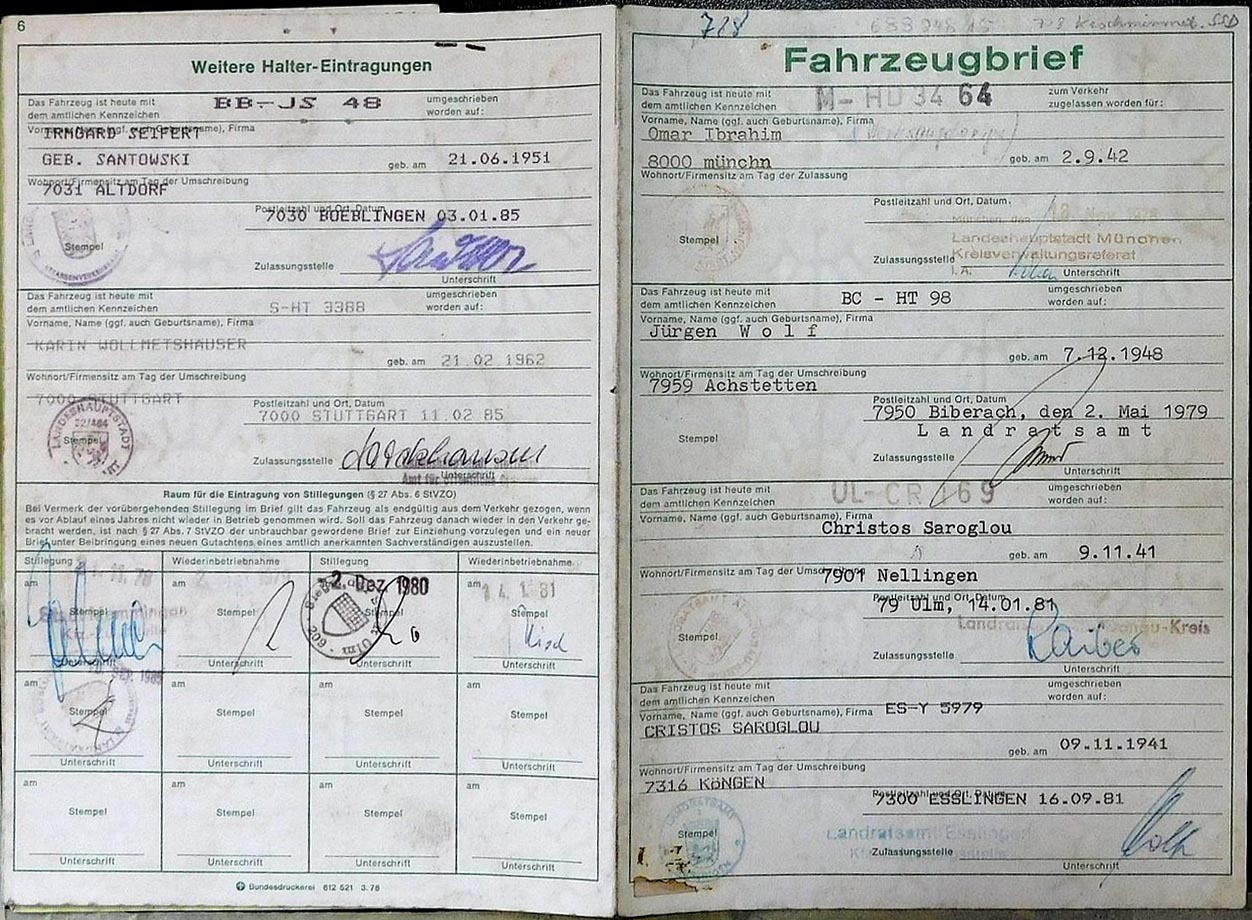 6
Weitere Halter-Eintragungen
Das Fahrzeug ist heute mit
dem amtlichen Kennzeichen
BB-JS 48
umgeschrieben
worden auf:
Vorname, Name (ggf. auch Geburtsname), Firma
IRMGARD SEIFERT
GEB. SANTOWSKI
geb. am 21.06.1951
Wohnort/Firmensitz am Tag der Umschreibung
7031 ALTDORF
Postleitzahl und Ort, Datum
7030 BOEBLINGEN 03.01.85
Stempel
Zulassungsstelle
Unterschrift
Das Fahrzeug ist heute mit
dem amtlichen Kennzeichen
S-HT 3388
umgeschrieben
worden auf:
Vorname, Name (ggf. auch Geburtsname), Firma
KARIN WOLLMETSHAUSER
geb. am 21.02 1962
Wohnort/Firmensitz am Tag der Umschreibung
7000 STUTTGART
Postleitzahl und Ort, Datum
7000 STUTTGART 11.02 85
LANDESHAUPTSTADT
Stempel
Zulassungsstelle
Unterschrift
Raum für die Eintragung von Stillegungen (§ 27 Abs. 6 StVZO)
Bei Vermerk der vorübergehenden Stillegung im Brief gilt das Fahrzeug als endgültig aus dem Verkehr gezogen, wenn
es vor Ablauf eines Jahres nicht wieder in Betrieb genommen wird. Soll das Fahrzeug danach wieder in den Verkehr ge-
bracht werden, ist nach § 27 Abs. 7 StVZO der unbrauchbar gewordene Brief zur Einziehung vorzulegen und ein neuer
Brief unter Beibringung eines neuen Gutachtens eines amtlich anerkannten Sachverständigen auszustellen.
Stillegung Wiederinbetriebnahme Stillegung Wiederinbetriebnahme
am am 2. Dez. 1980 am 14. 1. 81
Stempel Stempel Stempel Stempel
Unterschrift Unterschrift Unterschrift Unterschrift
am am am am
Stempel Stempel Stempel Stempel
Unterschrift Unterschrift Unterschrift Unterschrift
am am am am
Stempel Stempel Stempel Stempel
Unterschrift Unterschrift Unterschrift Unterschrift
Bundesdruckerei 612 521 3.78
788
Fahrzeugbrief
Das Fahrzeug ist heute mit
dem amtlichen Kennzeichen
M-HD 34 64
zum Verkehr
zugelassen worden für:
Vorname, Name (ggf. auch Geburtsname), Firma
Omar Ibrahim
8000 münchn
geb. am 2.9.42
Wohnort/Firmensitz am Tag der Zulassung
Postleitzahl und Ort, Datum
München, den
Landeshauptstadt München
Kreisverwaltungsreferat
I. A.
Stempel
Zulassungsstelle
Unterschrift
Das Fahrzeug ist heute mit
dem amtlichen Kennzeichen
BC - HT 98
umgeschrieben
worden auf:
Vorname, Name (ggf. auch Geburtsname), Firma
Jürgen W o l f
geb. am 7.12.1948
Wohnort/Firmensitz am Tag der Umschreibung
7959 Achstetten
Postleitzahl und Ort, Datum
7950 Biberach, den 2. Mai 1979
L a n d r a t s a m t
Stempel
Zulassungsstelle
Unterschrift
Das Fahrzeug ist heute mit
dem amtlichen Kennzeichen
UL-CR 169
umgeschrieben
worden auf:
Vorname, Name (ggf. auch Geburtsname), Firma
Christos Saroglou
geb. am 9.11.41
Wohnort/Firmensitz am Tag der Umschreibung
7901 Nellingen
Postleitzahl und Ort, Datum
79 Ulm, 14.01.81
Stempel
Zulassungsstelle
Unterschrift
Das Fahrzeug ist heute mit
dem amtlichen Kennzeichen
ES-Y 5979
umgeschrieben
worden auf:
Vorname, Name (ggf. auch Geburtsname), Firma
CRISTOS SAROGLOU
geb. am 09.11.1941
Wohnort/Firmensitz am Tag der Umschreibung
7316 KöNGEN
Postleitzahl und Ort, Datum
7300 ESSLINGEN 16.09.81
Landratsamt Esslingen
Stempel
Zulassungsstelle
Unterschrift